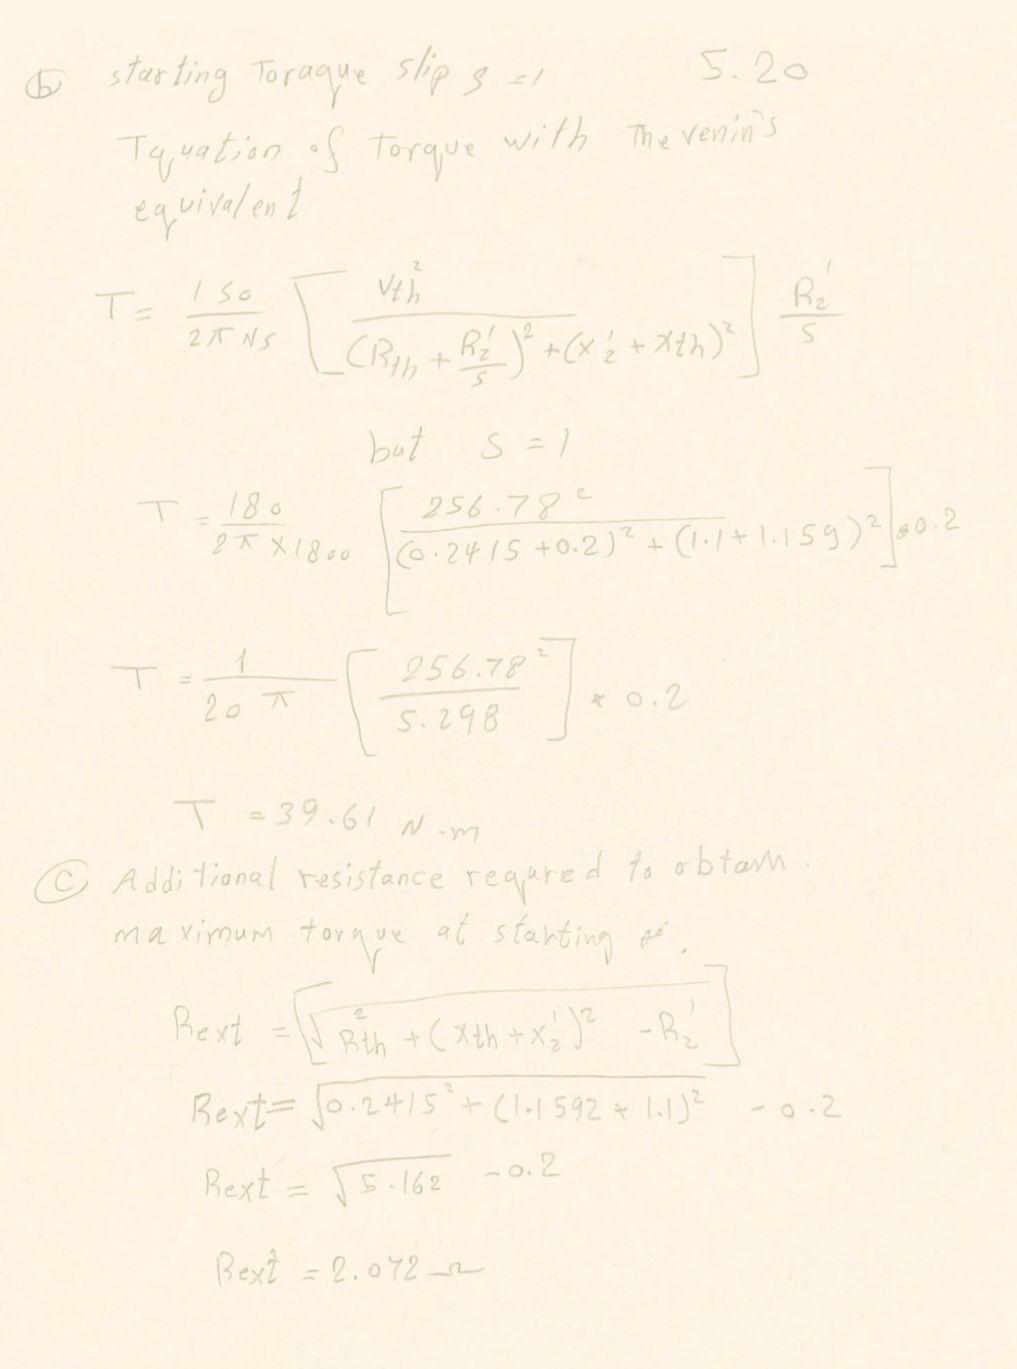 ⓑ starting Toraque slip s = 1 5.20
Tquation of Torque with Thevenin's
equivalent
T = 180 / 2π Ns [ Vth² / (Rth + R2'/s)² + (x2' + xth)² ] R2' / s
but s = 1
T = 180 / 2π × 1800 [ 256.78² / (0.2415 + 0.2)² + (1.1 + 1.159)² ] * 0.2
T = 1 / 20 π [ 256.78² / 5.298 ] * 0.2
T = 39.61 N.m
ⓒ Additional resistance requred to obtain.
maximum torque at starting
Rext = [ √ Rth² + (xth + x2')² - R2' ]
Rext = √ 0.2415² + (1.1592 + 1.1)² - 0.2
Rext = √ 5.162 - 0.2
Rext = 2.072 Ω